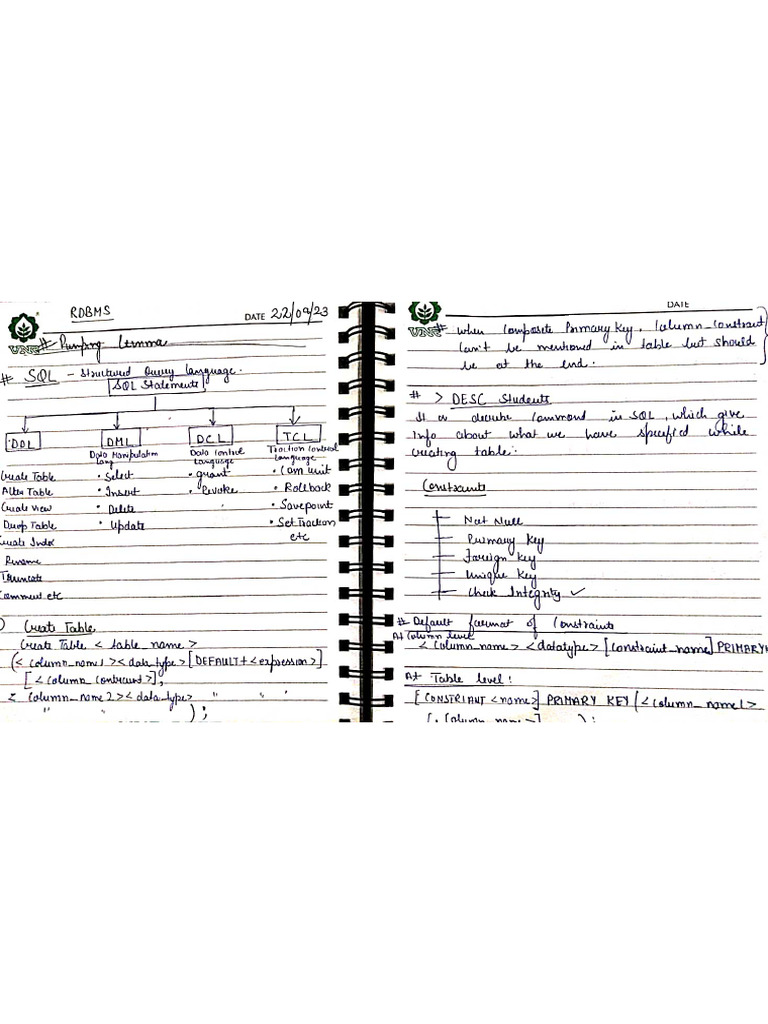 RDBMS
DATE 22/09/23
UNI
# Pumping Lemma
# SQL - Structured Query Language.
SQL Statements
DDL DML DCL TCL
Data Manipulation Lang
Data Control Language
Traction Control Language
Create Table • Select • grant • Commit
Alter Table • Insert • Revoke • Rollback
Create View • Delete • Savepoint
Drop Table • Update • Set Traction
Create Index etc
Rename
Truncate
Comment etc
) Create Table
Create Table < table_name >
(< column_name1 >< data_type > [DEFAULT + < expression >]
[< column_contraint >],
< column_name 2 >< data_type > " " "
" " );
DATE
# when composite Primary Key, column_constraint
can't be mentioned in table but should
be at the end.
# > DESC Students
It is describe command in SQL, which give
info about what we have specified while
creating table.
Constraints
Not Null
Primary Key
Foreign Key
Unique Key
Check Integrity ✓
# Default format of Constraints
At Column level
< column_name > < datatype > [constraint_name] PRIMARY
At Table level:
[CONSTRIANT <name>] PRIMARY KEY (< column_name1 >
[, column_name >] );